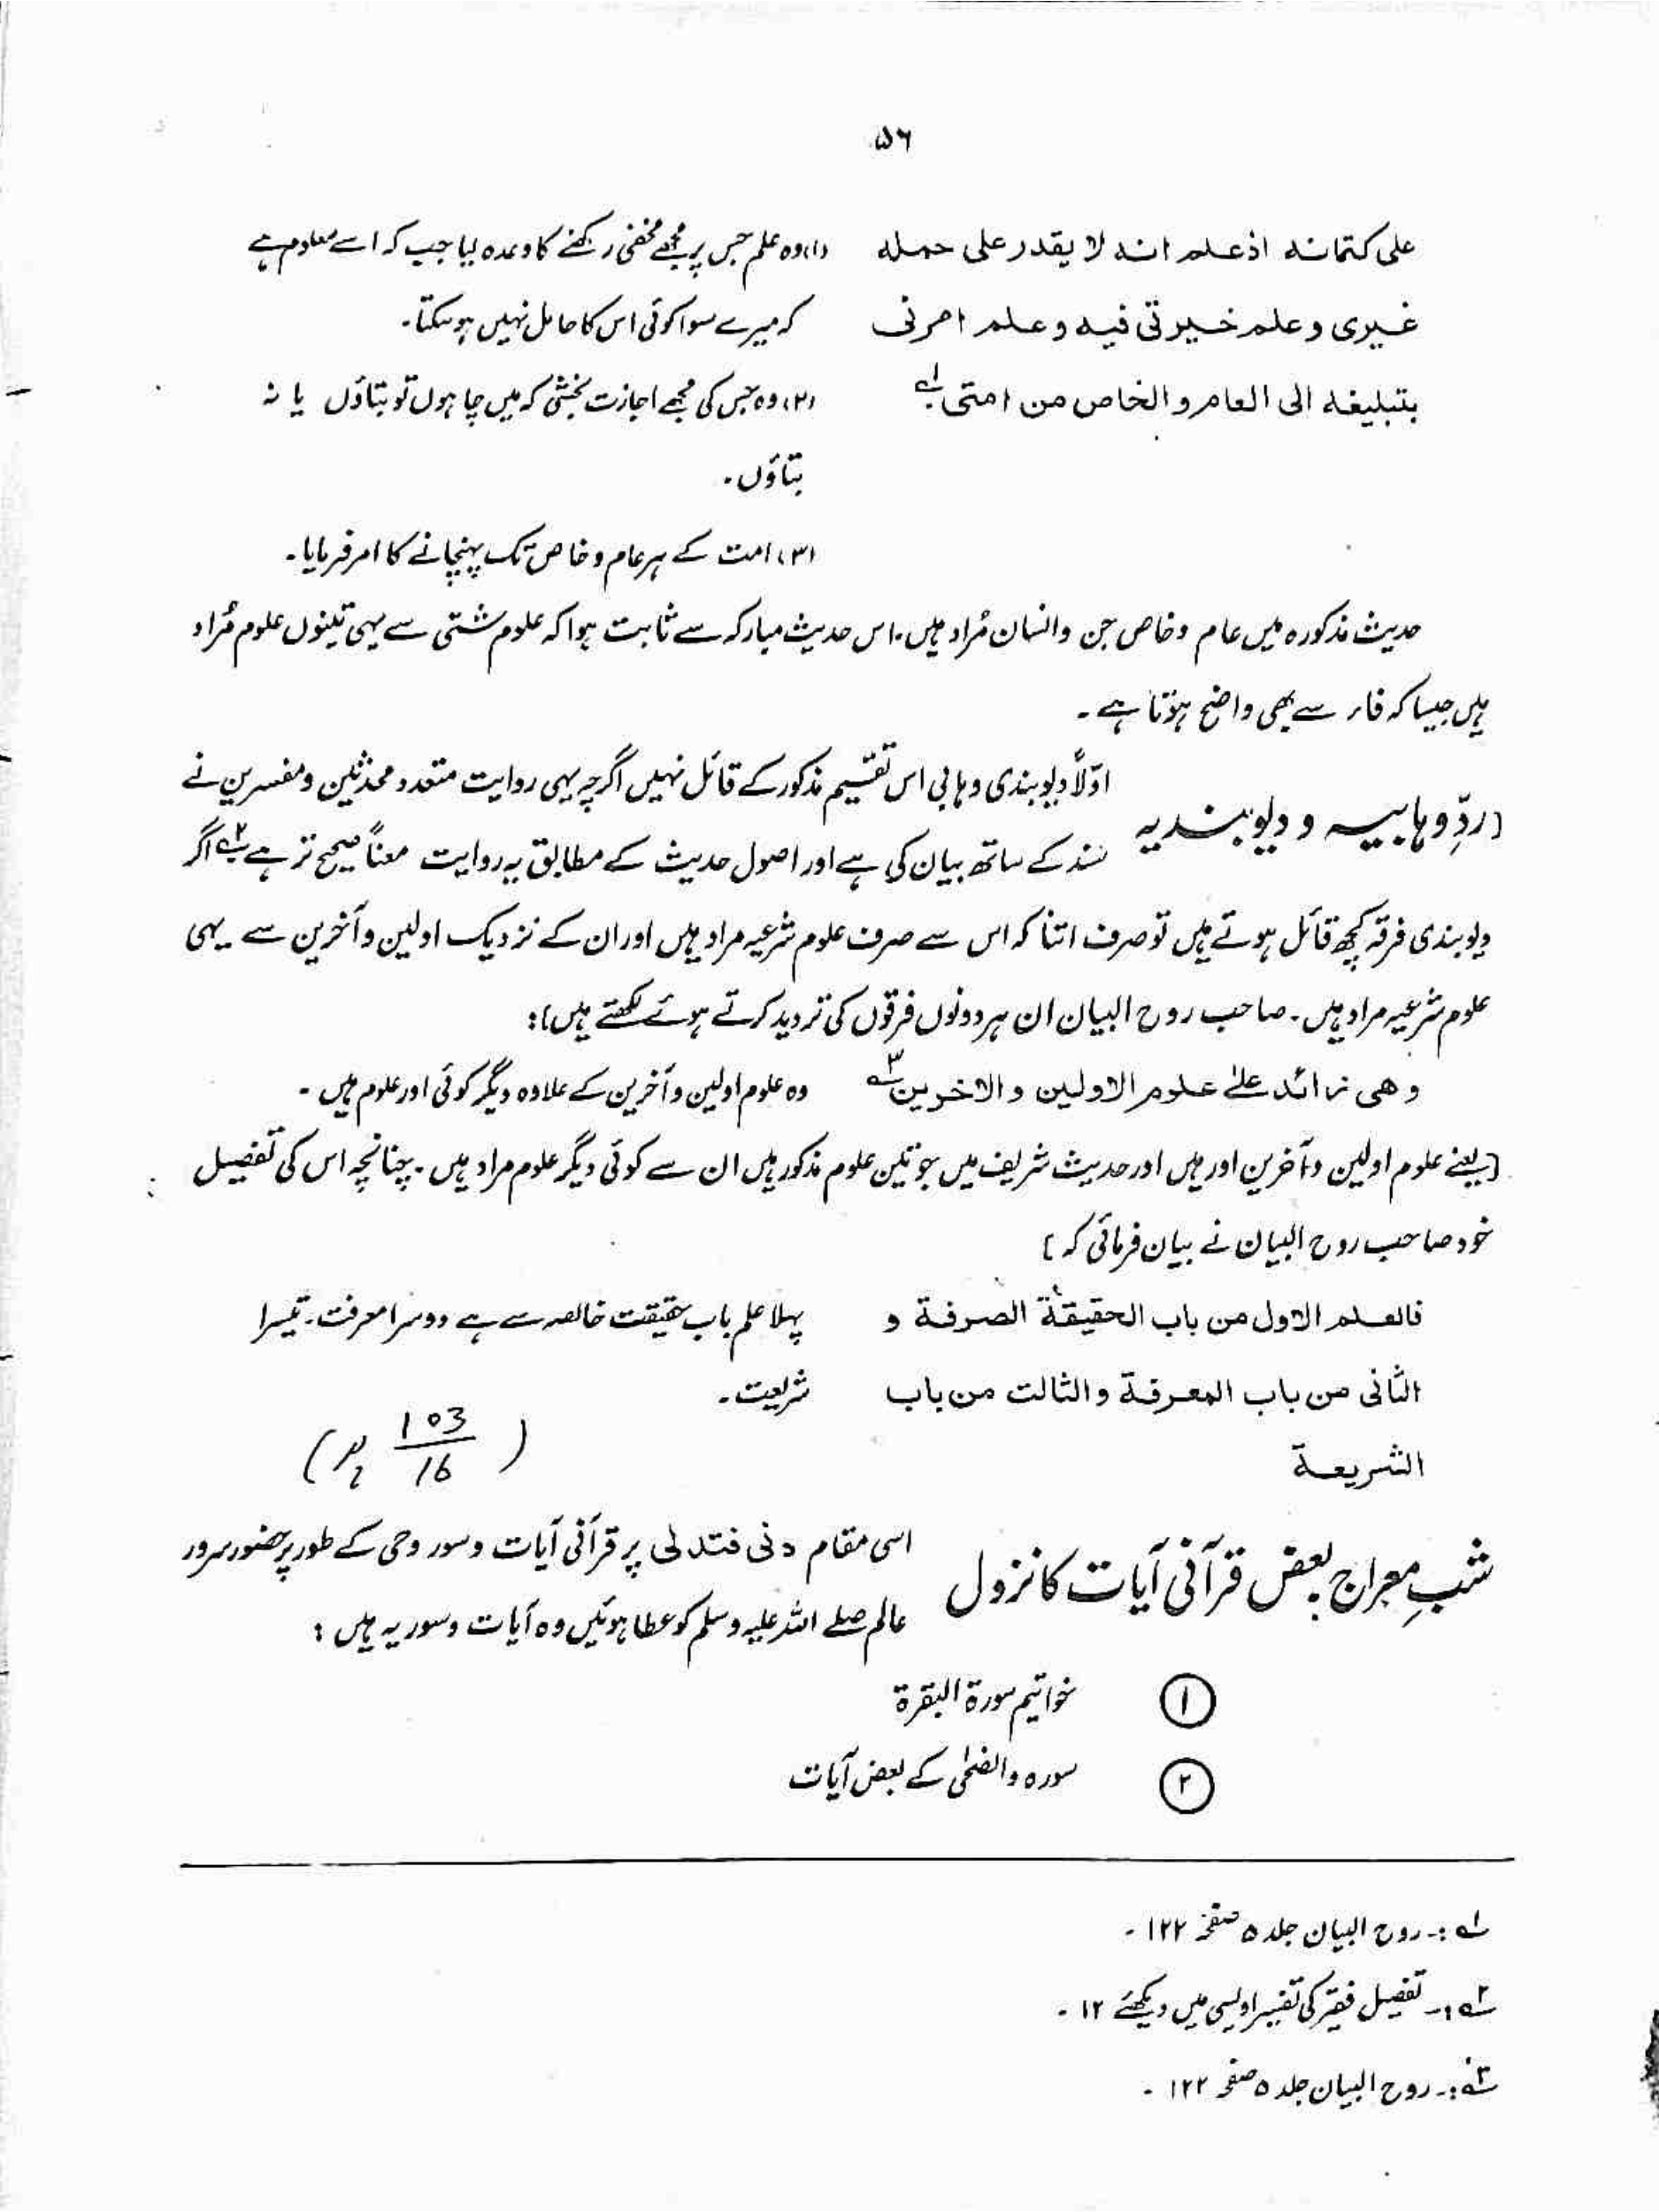 ۵۶
علی کتمانه اذعلم انه لا یقدر علی حمله
غیری وعلم خیرنی فیه وعلم امرنی
بتبلیغه الی العام والخاص من امتی ۱؎
(۱) وہ علم جس پر مجھے مخفی رکھنے کا وعدہ لیا جب کہ اسے معلوم ہے
کہ میرے سوا کوئی اس کا حامل نہیں ہو سکتا۔
(۲) وہ جس کی مجھے اجازت بخشی کہ میں چاہوں تو بتاؤں یا نہ
بتاؤں۔
(۳) امت کے ہر عام و خاص تک پہنچانے کا امر فرمایا۔
حدیث مذکورہ میں عام و خاص جن و انسان مُراد ہیں۔ اس حدیث مبارکہ سے ثابت ہوا کہ علوم شتی سے یہی تینوں علوم مُراد
ہیں جیسا کہ فاء سے بھی واضح ہوتا ہے۔
(ردِّ وہابیہ و دیوبندیہ
اوّلاً دیوبندی وہابی اس تقسیم مذکور کے قائل نہیں اگرچہ یہی روایت متعدد محدثین ومفسرین نے
سند کے ساتھ بیان کی ہے اور اصول حدیث کے مطابق یہ روایت معناً صحیح تر ہے ۲؎ اگر
دیوبندی فرقہ کچھ قائل ہوتے ہیں تو صرف اتنا کہ اس سے صرف علوم شرعیہ مراد ہیں اور ان کے نزدیک اولین و آخرین سے یہی
علوم شرعیہ مراد ہیں۔ صاحب روح البیان ان ہر دونوں فرقوں کی تردید کرتے ہوئے لکھتے ہیں):
وھی زائد علیٰ علوم الاولین والاخرین ۳؎
وہ علوم اولین و آخرین کے علاوہ دیگر کوئی اور علوم ہیں۔
(یعنے علوم اولین و آخرین اور ہیں اور حدیث شریف میں جو تین علوم مذکور ہیں ان سے کوئی دیگر علوم مراد ہیں۔ چنانچہ اس کی تفصیل
خود صاحب روح البیان نے بیان فرمائی کہ)
فالعلم الاول من باب الحقیقة الصرفة و
الثانی من باب المعرفة والثالث من باب
الشریعة
پہلا علم باب حقیقت خالصہ سے ہے دوسرا معرفت۔ تیسرا
شریعت۔
( 103/16 )
شبِ معراج بعض قرآنی آیات کا نزول
اسی مقام دنی فتدلی پر قرآنی آیات و سور وحی کے طور پر حضور سرور
عالم صلے اللہ علیہ وسلم کو عطا ہوئیں وہ آیات وسور یہ ہیں :
① خواتیم سورۃ البقرۃ
② سورہ والضحیٰ کے بعض آیات
۱؎ :۔ روح البیان جلد ۵ صفحہ ۱۲۲۔
۲؎ :۔ تفصیل فقیر کی تفسیر اویسی میں دیکھئے ۱۲۔
۳؎ :۔ روح البیان جلد ۵ صفحہ ۱۲۲۔